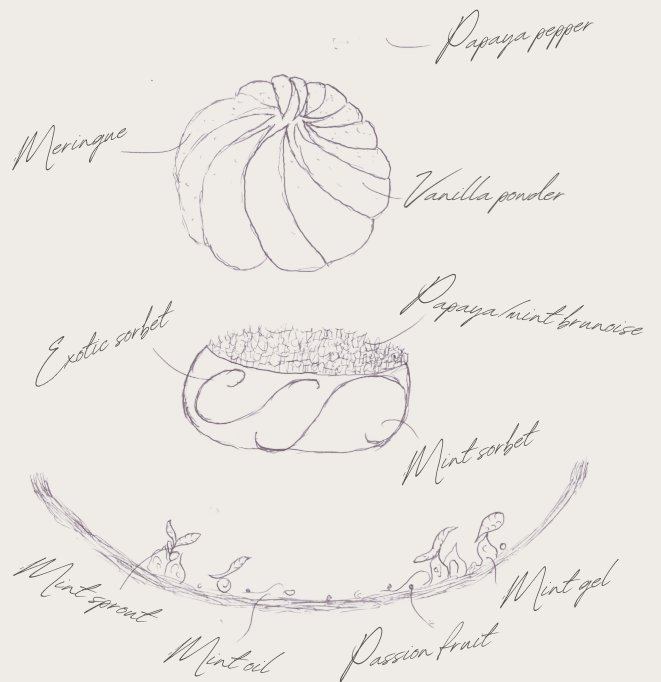 Papaya pepper
Meringue
Vanilla powder
Papaya/mint brunoise
Exotic sorbet
Mint sorbet
Mint sprout
Mint gel
Mint oil
Passion fruit